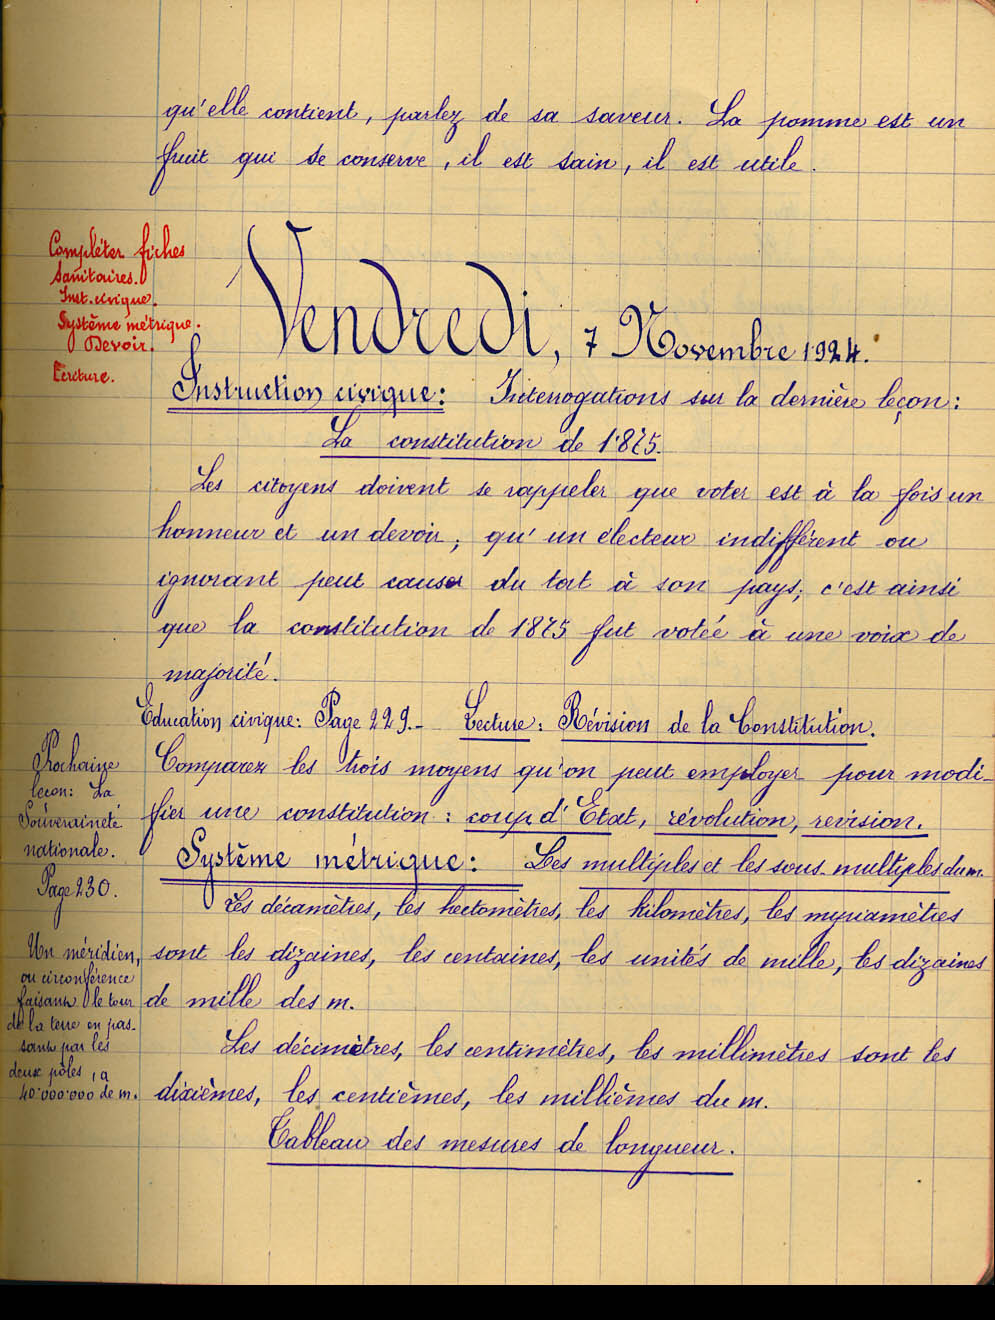 qu'elle contient, parlez de sa saveur. La pomme est un
fruit qui se conserve, il est sain, il est utile.
Compléter fiches
sanitaires.
Inst. civique.
Système métrique.
Devoir.
Ecriture.
Vendredi, 7 Novembre 1924.
Instruction civique: Interrogations sur la dernière leçon:
La constitution de 1875.
Les citoyens doivent se rappeler que voter est à la fois un
honneur et un devoir; qu'un électeur indifférent ou
ignorant peut causer du tort à son pays; c'est ainsi
que la constitution de 1875 fut votée à une voix de
majorité.
Education civique: Page 229.- Lecture: Révision de la Constitution.
Comparez les trois moyens qu'on peut employer pour modi-
fier une constitution: coup d'Etat, révolution, revision.
Prochaine
leçon: La
Souveraineté
nationale.
Page 230.
Système métrique: Les multiples et les sous-multiples du m.
Les décamètres, les hectomètres, les kilomètres, les myriamètres
sont les dizaines, les centaines, les unités de mille, les dizaines
de mille des m.
Un méridien,
ou circonférence
faisant le tour
de la terre en pas-
sant par les
deux pôles, a
40.000.000 de m.
Les décimètres, les centimètres, les millimètres sont les
dixièmes, les centièmes, les millièmes du m.
Tableau des mesures de longueur.